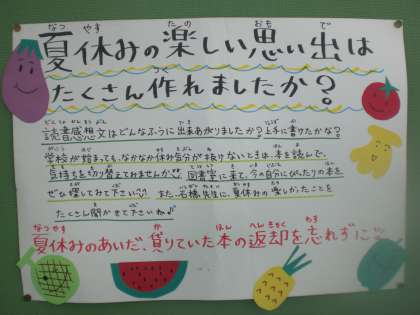 夏休みの楽しい思い出は
たくさん作れましたか?
読書感想文はどんなふうに出来あがりましたか?上手に書けたかな?
学校が始まっても、なかなか休み気分が抜けないときは、本を読んで、
気持ちを切り替えてみませんか!! 図書室に来て、今の自分にぴったりの本を
ぜひ探してみて下さい♡♡ また、石橋先生に、夏休みの楽しかったことを
たくさん聞かせて下さいね♪
夏休みのあいだ、貸りていた本の返却を忘れずに